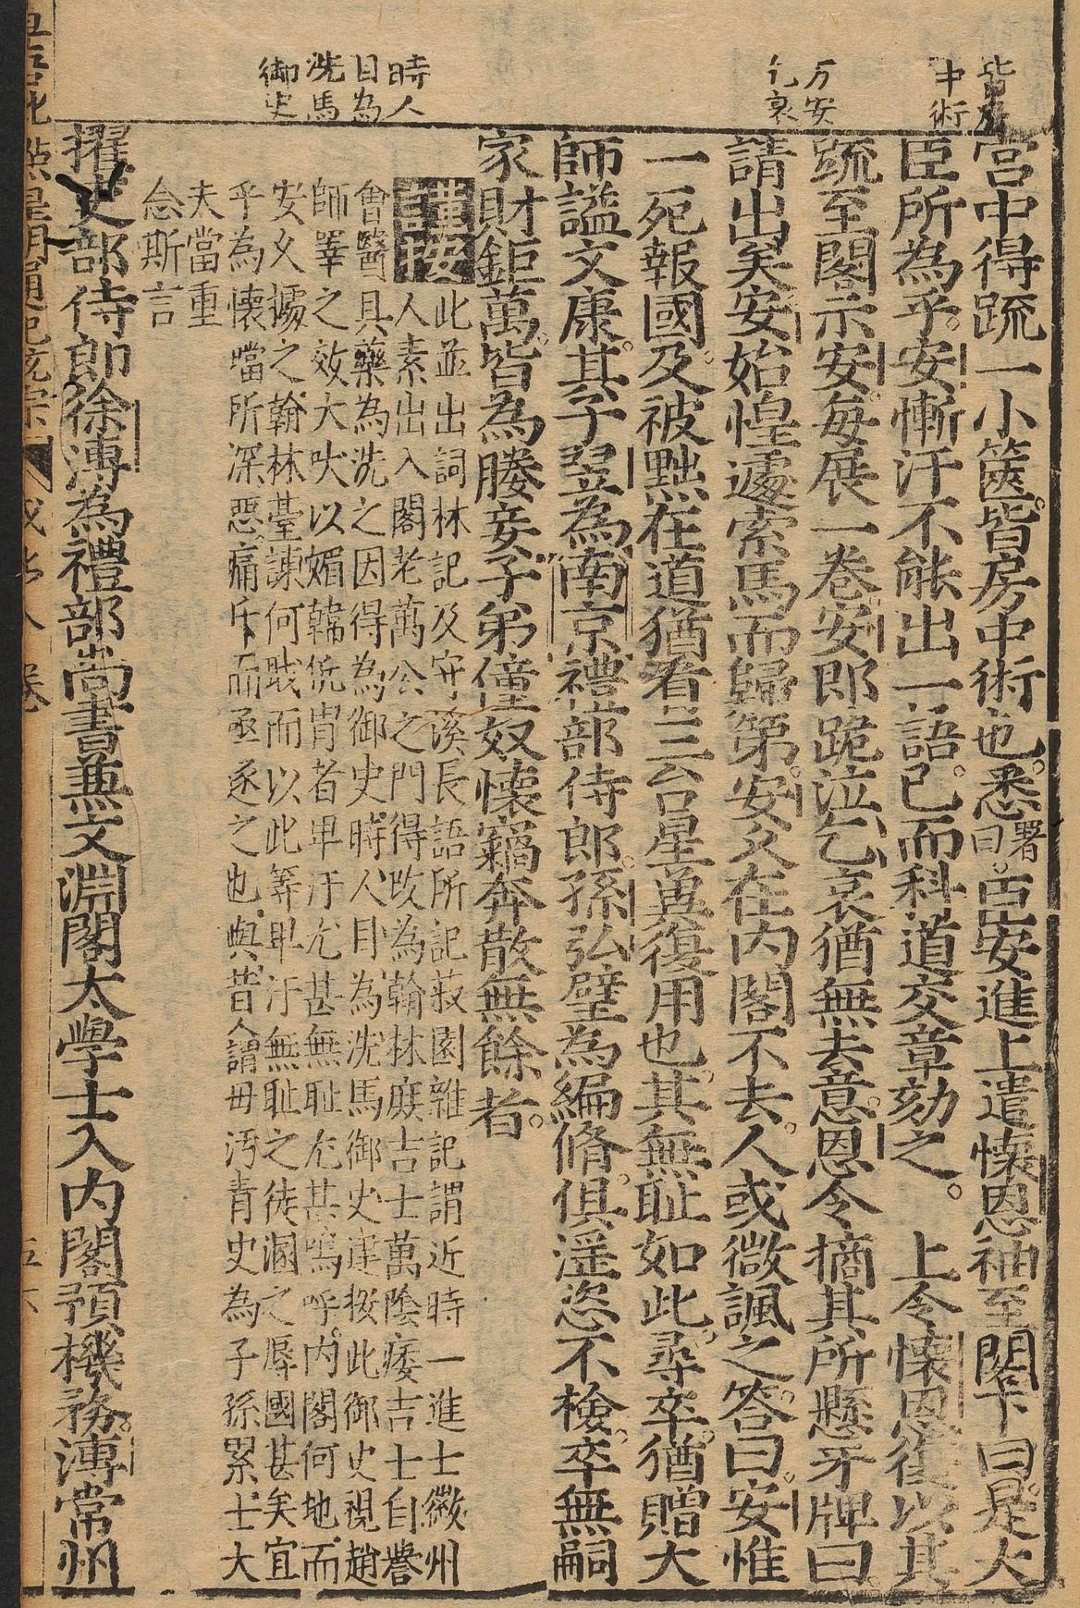 皆房
中術
万安
乞哀
時人
目為
洗馬
御史
宮中得䟽一小篋皆房中術也悉署曰臣安進上遣懷恩袖至閣下曰是大
臣所為乎安慚汗不能出一語已而科道交章劾之 上令懷恩復以其
䟽至閣示安每展一卷安即跪泣乞哀猶無去意恩令摘其所懸牙牌曰
請出矣安始惶遽索馬而歸第安久在內閣不去人或微諷之答曰安惟
一死報國及被黜在道猶看三台星兾復用也其無恥如此尋卒猶贈大
師謚文康其子翌為南京禮部侍郎孫弘璧為編脩俱滛恣不檢卒無嗣
家財鉅萬皆為媵妾子弟僮奴懷竊奔散無餘者
謹按
此並出詞林記及守溪長語所記菽園雜記謂近時一進士徽州
人素出入閣老萬公之門得改為翰林庶吉士萬陰痿吉士自譽
會醫具藥為洗之因得為御史時人目為洗馬御史運按此御史視趙
師䍐之效犬吠以媚韓侂冑者卑汙尤甚無恥尤甚嗚呼內閣何地而
安久據之翰林臺諫何職而以此等卑汙無耻之徒溷之辱國甚矣宜
乎為懷當所深惡痛斥而亟逐之也與昔人謂毋汚青史為子孫累士大
夫當重
念斯言
擢吏部侍郎徐溥為禮部尚書兼文淵閣大學士入內閣預機務溥常州